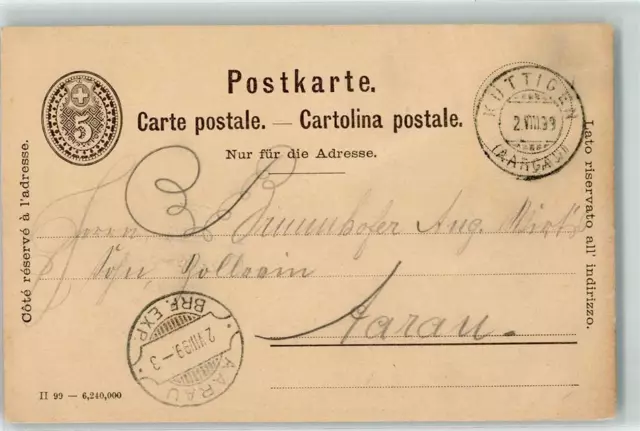 Postkarte.
Carte postale. — Cartolina postale.
Nur für die Adresse.
5
KÜTTIGEN
2.VIII.99
(AARGAU)
Côté réservé à l'adresse.
Lato riservato all' indirizzo.
Herrn Aug.
Sohn,
Aarau.
BRF. EXP.
2.VIII.99-3
AARAU
II 99 — 6,240,000